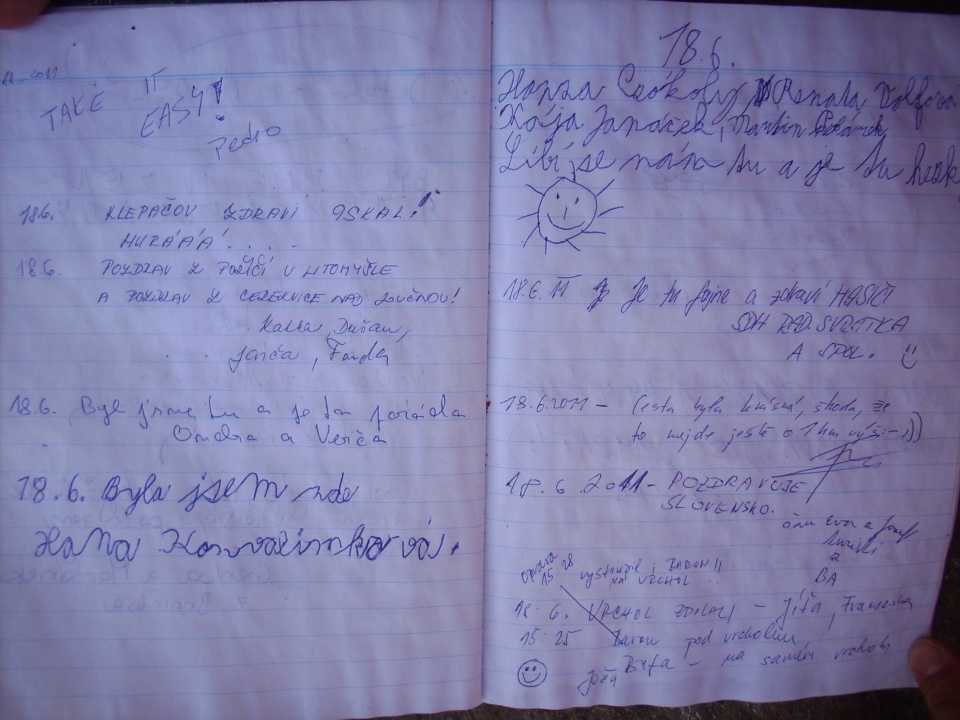 TAKE IT
EASY!
Pedro
18.6. KLEPAČOV ZDRAVÍ 9SKAL!
HURÁÁÁ!....
18.6. POZDRAV Z POŘÍČÍ U LITOMYŠLE
A POZDRAV Z CEREKVICE NAD LOUČNOU!
Dušan,
Jarča, Fanda
18.6. Byli jsme tu a je to paráda
Ondra a Verča
18.6. Byla jsem zde
Hana
18.6.
Honza Renata Volfová
Kája Janáček, Martin
Líbí se nám tu a je tu hezk
18.6.11 Je tu fajne a zdraví HASIČI
SDH RAD. SVRATKA
A SPOL.
18.6.2011 - Cesta byla krásná, škoda, že
to nejde ještě o 1 km výš :-))
18.6.2011 - POZDRAVUJE
SLOVENSKO.
Eva a Jozef
z
BA
oprava
15:28 vystoupil i BARON!!
NA VRCHOL!!
18.6. VRCHOL ZDOLALI - Jíťa,
15:25 Baron pod vrcholem,
na samém vrcholu